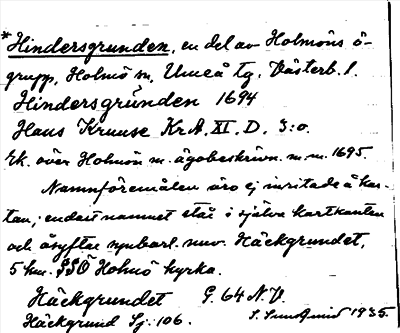 *Hindersgrunden, en del av Holmöns ö-
grupp, Holmö sn, Umeå tg. Västerb. l.
Hindersgrúnden 1694
Hans Kruuse Kr.A. XI. D. 3:o.
Ek. över Holmön m. ägobeskrivn. m. m. 1695.
Namnföremålen äro ej inritade å kar-
tan; endast namnet står i själva kartkanten
och åsyftar uppenbarl. nuv. Häckgrundet,
5 km. SSÖ Holmö kyrka.
Häckgrundet G. 64 N.V.
Häckgrund Sj. 106.
1935.